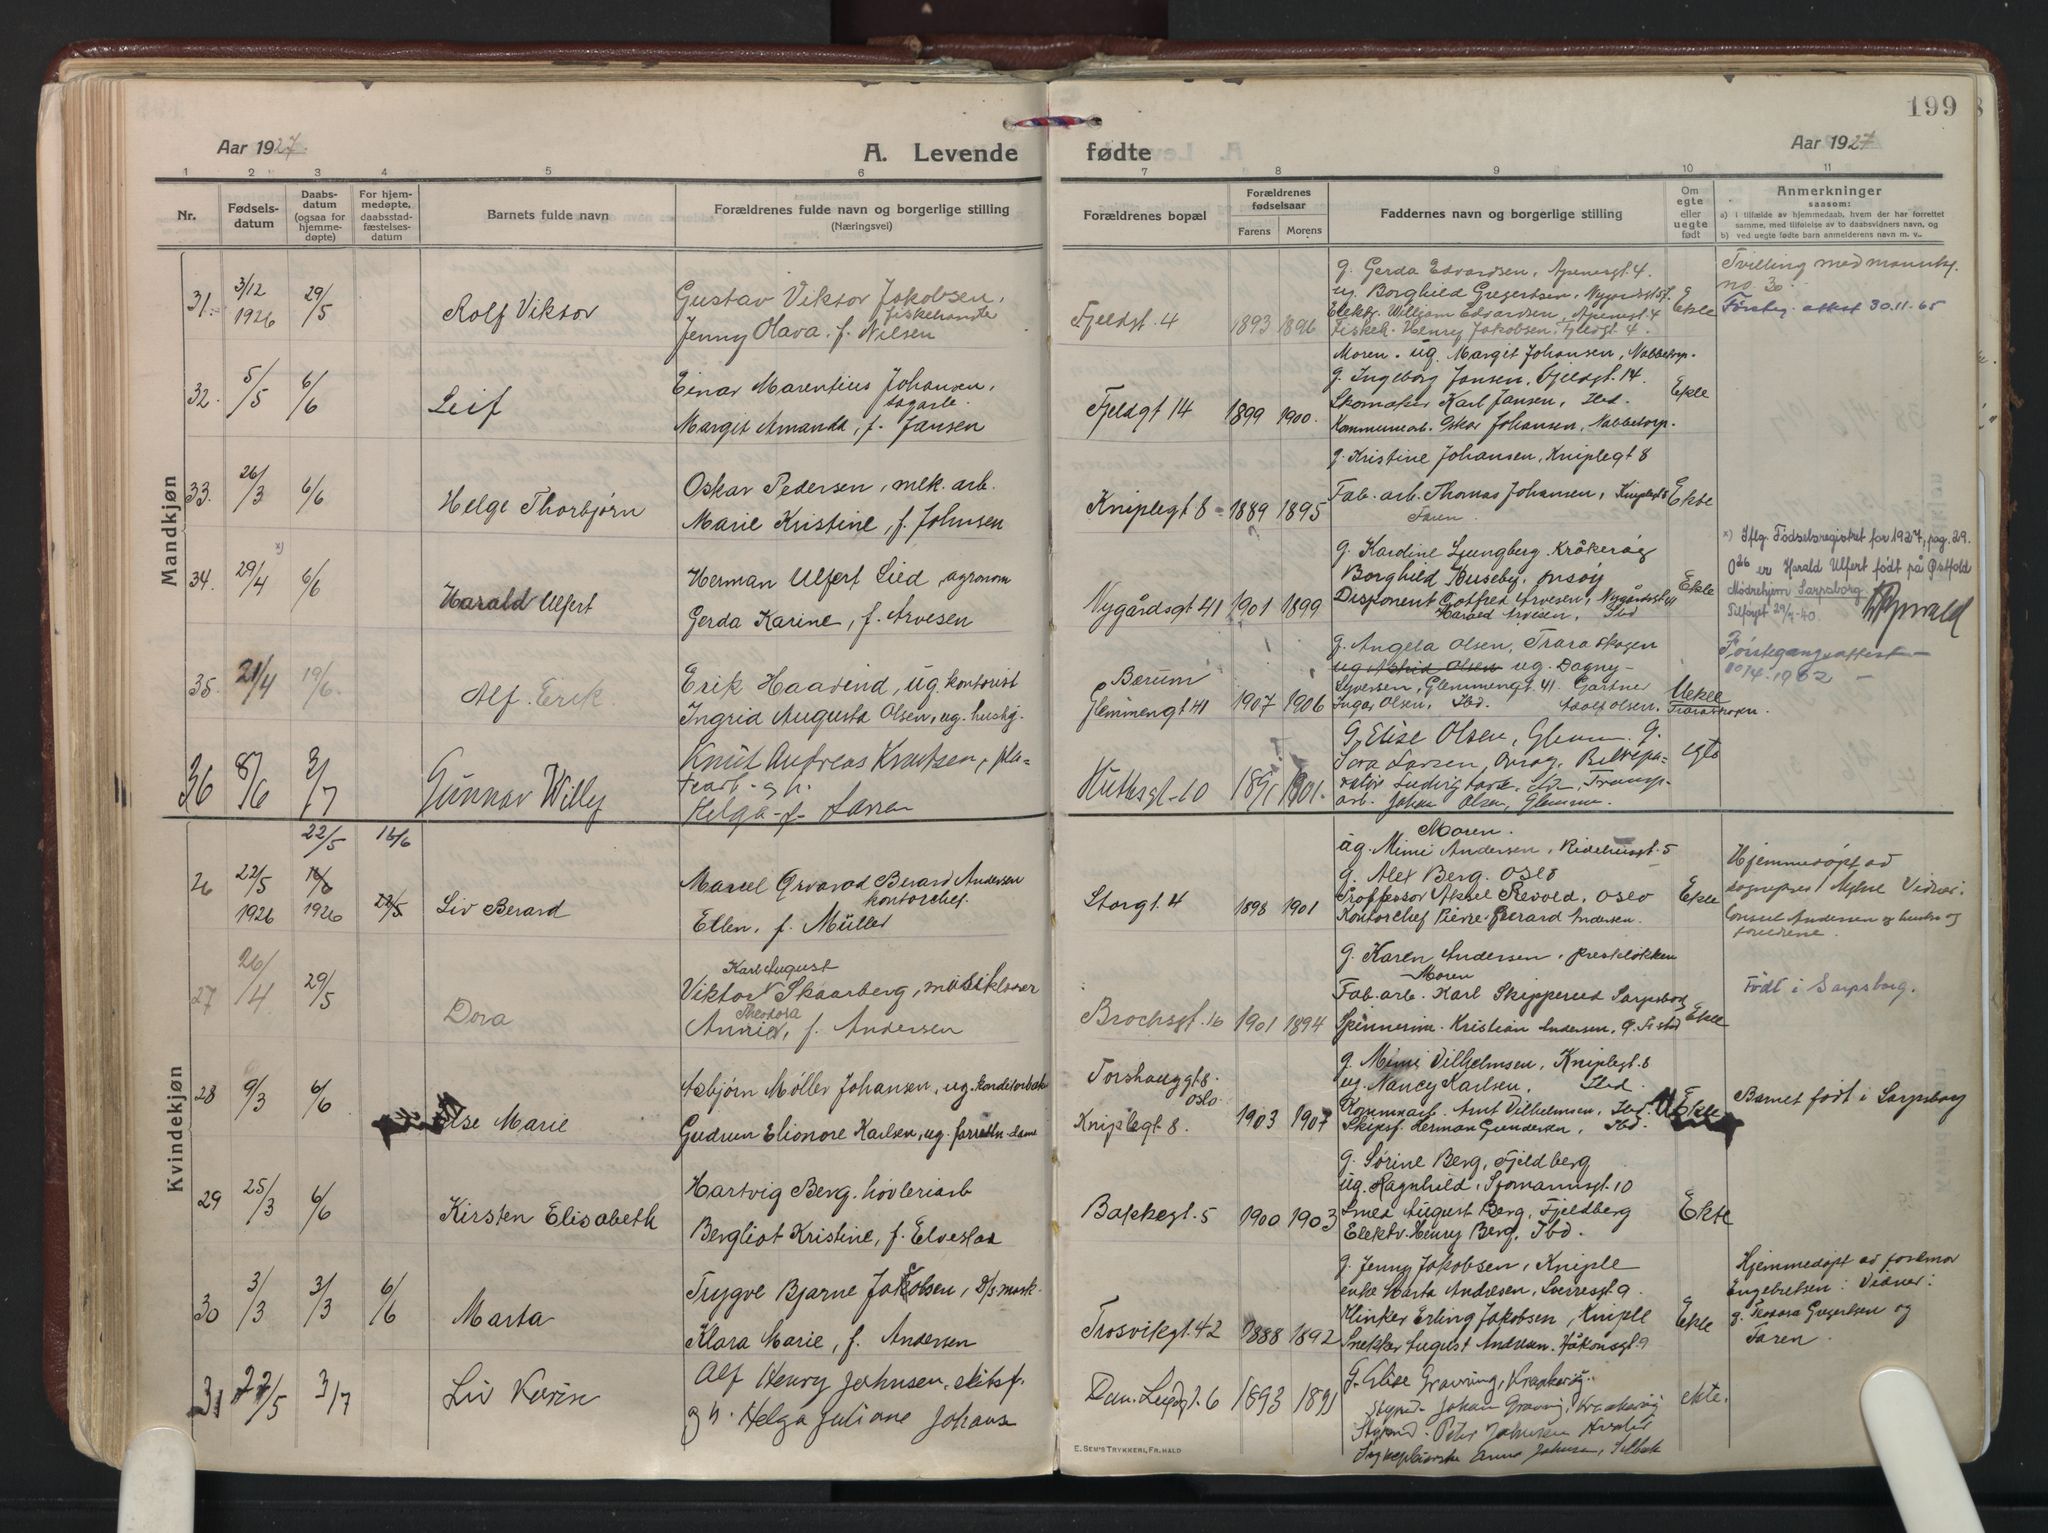 199
Aar 1927
A. Levende
fødte
Aar 1927
1 2 3 4 5 6 7 8 9 10 11
Nr.
Fødsels-
datum
Daabs-
datum
(ogsaa for
hjemme-
døpte)
For hjem-
medøpte,
daabsstad-
fæstelses-
datum
Barnets fulde navn
Forældrenes fulde navn og borgerlige stilling
(Næringsvei)
Forældrenes bopæl
Forældrenes
fødselsaar
Farens Morens
Faddernes navn og borgerlige stilling
Om
egte
eller
uegte
født
Anmerkninger
saasom:
a) i tilfælde av hjemmedaab, hvem der har forrettet
samme, med tilføielse av to daabsvidners navn, og
b) ved uegte fødte barn anmelderens navn m. v.
Mandkjøn
31. 3/12 1926 29/5
Rolf Viktor
Gustav Viktor Jakobsen,
fiskehandler
Jenny Olava, f. Nilsen
Fjeldgt. 4 1893 1896
g. Gerda Edvardsen, Apenesgt. 4.
ug. Borghild Gregertsen, Nygårdsgt.
Elektr. William Edvardsen, Apenesgt. 4
Fiskeh. Henry Jakobsen, Fjeldgt. 4.
Ekte
Tvilling med mannkj.
no. 30.
Førsteg. attest 30.11.65
32. 5/5 6/6
Leif
Einar Marentius Johansen,
sagarb.
Margit Amanda, f. Jansen
Fjeldgt 14 1899 1900.
Moren. ug. Margit Johansen, Nabbetorp.
g. Ingeborg Jansen, Fjeldgt. 14.
Skomaker Karl Jansen, Ibd.
Kommunearb. Oskar Johansen, Nabbetorp.
Ekte
33. 26/3 6/6
Helge Thorbjørn
Oskar Pedersen, mek. arb.
Marie Kristine, f. Johnsen
Kniplegt 8 1889 1895
g. Kristine Johansen, Kniplegt 8
Fab. arb. Thomas Johansen, Kniplegt 8
Faren.
Ekte
34. 29/4 x) 6/6
Harald Ulfert
Herman Ulfert Lied, agronom
Gerda Karine, f. Arvesen
Nygårdsgt 41 1901 1899
g. Kardine Ljungberg Kråkerøy
Borghild Huseby, Onsøy
Disponent Gotfred Arvesen, Nygårdsgt 41
Harald Arvesen, Ibd
Ekte
x) Iflg. Fødselsregistret for 1927, pag. 29.
er Harald Ulfert født på Østfold
Mødrehjem Sarpsborg.
Tilføyet 29/4-40.
35. 21/4 19/6.
Alf Erik
Erik Haavind, ug. kontorist
Ingrid Augusta Olsen, ug. hushj.
Bærum
Glemmengt 41 1907 1906
g. Angela Olsen, Traraskogen
ug. Astrid Olsen ug. Dagny
Syversen, Glemmengt. 41. Gartner
Ingar Olsen, Ibd. Adolf Olsen,
Traraskogen.
Uekte
Førstegangsattest
1962
36 8/6 3/7
Gunnar Willy
Knut Andreas Knutsen,
Helga f. Larsen
10 1901.
G. Elise Olsen, Glemm. g.
Sara Larsen, Onsøy,
arb. Johan Olsen, Glemmen.
egte
Kvindekjøn
22/5 16/6
26 22/5 1926 16/6 1926 22/5
Liv Berard
Marcel Berard Andersen
kontorchef.
Ellen, f. Müller
Storgt. 4 1898 1901
Moren.
ug. Mimi Andersen, Ridehusgt. 5
g. Alex Berg. Oslo
Proffessor Aksel Revold, Oslo
Kontorchef Pierre Berard Andersen.
Ekte
Hjemmedøpt av
sognepres
Consul Andersen og hustru og
foreldrene.
27 26/4 29/5
Dora
Karl August
Viktor Skaarberg,
Theodora
Annie, f. Andersen
Brochsgt. 16 1901 1894
g. Karen Andersen, Presteløkken
Moren
Fab. arb. Karl Skipperud Sarpsborg
Kristian Andersen,
Ekte
Født i Sarpsborg.
28 9/3 6/6
Else Marie
Asbjørn Møller Johansen, ug.
Gudrun Elionore Karlsen, ug.
Torshauggt 8.
Oslo
Kniplegt 8. 1903 1907
g. Mimi Vilhelmsen, Kniplegt. 8
ug. Nancy Karlsen, Ibd.
Kommunearb. Arnt Vilhelmsen, Ibd.
Skipsf. Herman Gundersen, Ibd.
UEkte
Barnet født i Sarpsborg
29 25/3 6/6
Kirsten Elisabeth
Hartvig Berg, høvleriarb
Bergliot Kristine, f. Elvestad
Bakkegt. 5 1900 1903
g. Sørine Berg, Fjeldberg
ug. Ragnhild, Sjømannsgt. 10
Smed August Berg, Fjeldberg
Elektr. Henry Berg, Ibd.
Ekte
30 3/3 3/3 6/6
Marta
Trygve Bjarne Jakobsen, D/s. mask.
Klara Marie, f. Andersen
Trosvikgt. 42 1888 1892
g. Jenny Jakobsen, Kniple
enke Marta Andersen, Sverresgt. 9.
Klinker Erling Jakobsen, Kniple
Snekker August Andersen. Håkonsgt. 9
Ekte
Hjemmedøpt av formor
Engebretsen: Vidner:
g. Teodora Gregertsen og
Faren.
31 22/5 3/7
Liv Karin
Alf Henry Johnsen,
g h. Helga Juliane Johans
6 1893 1891
G. Elise Gravning, Kraakerøy.
Styrmd. Johan Gravning, Kraakerøy
Styrmd. Peter Johnsen
Sykepleierske Anna Johnsen, Selbak
ekte.
E. SEM'S TRYKKERI, FR.HALD